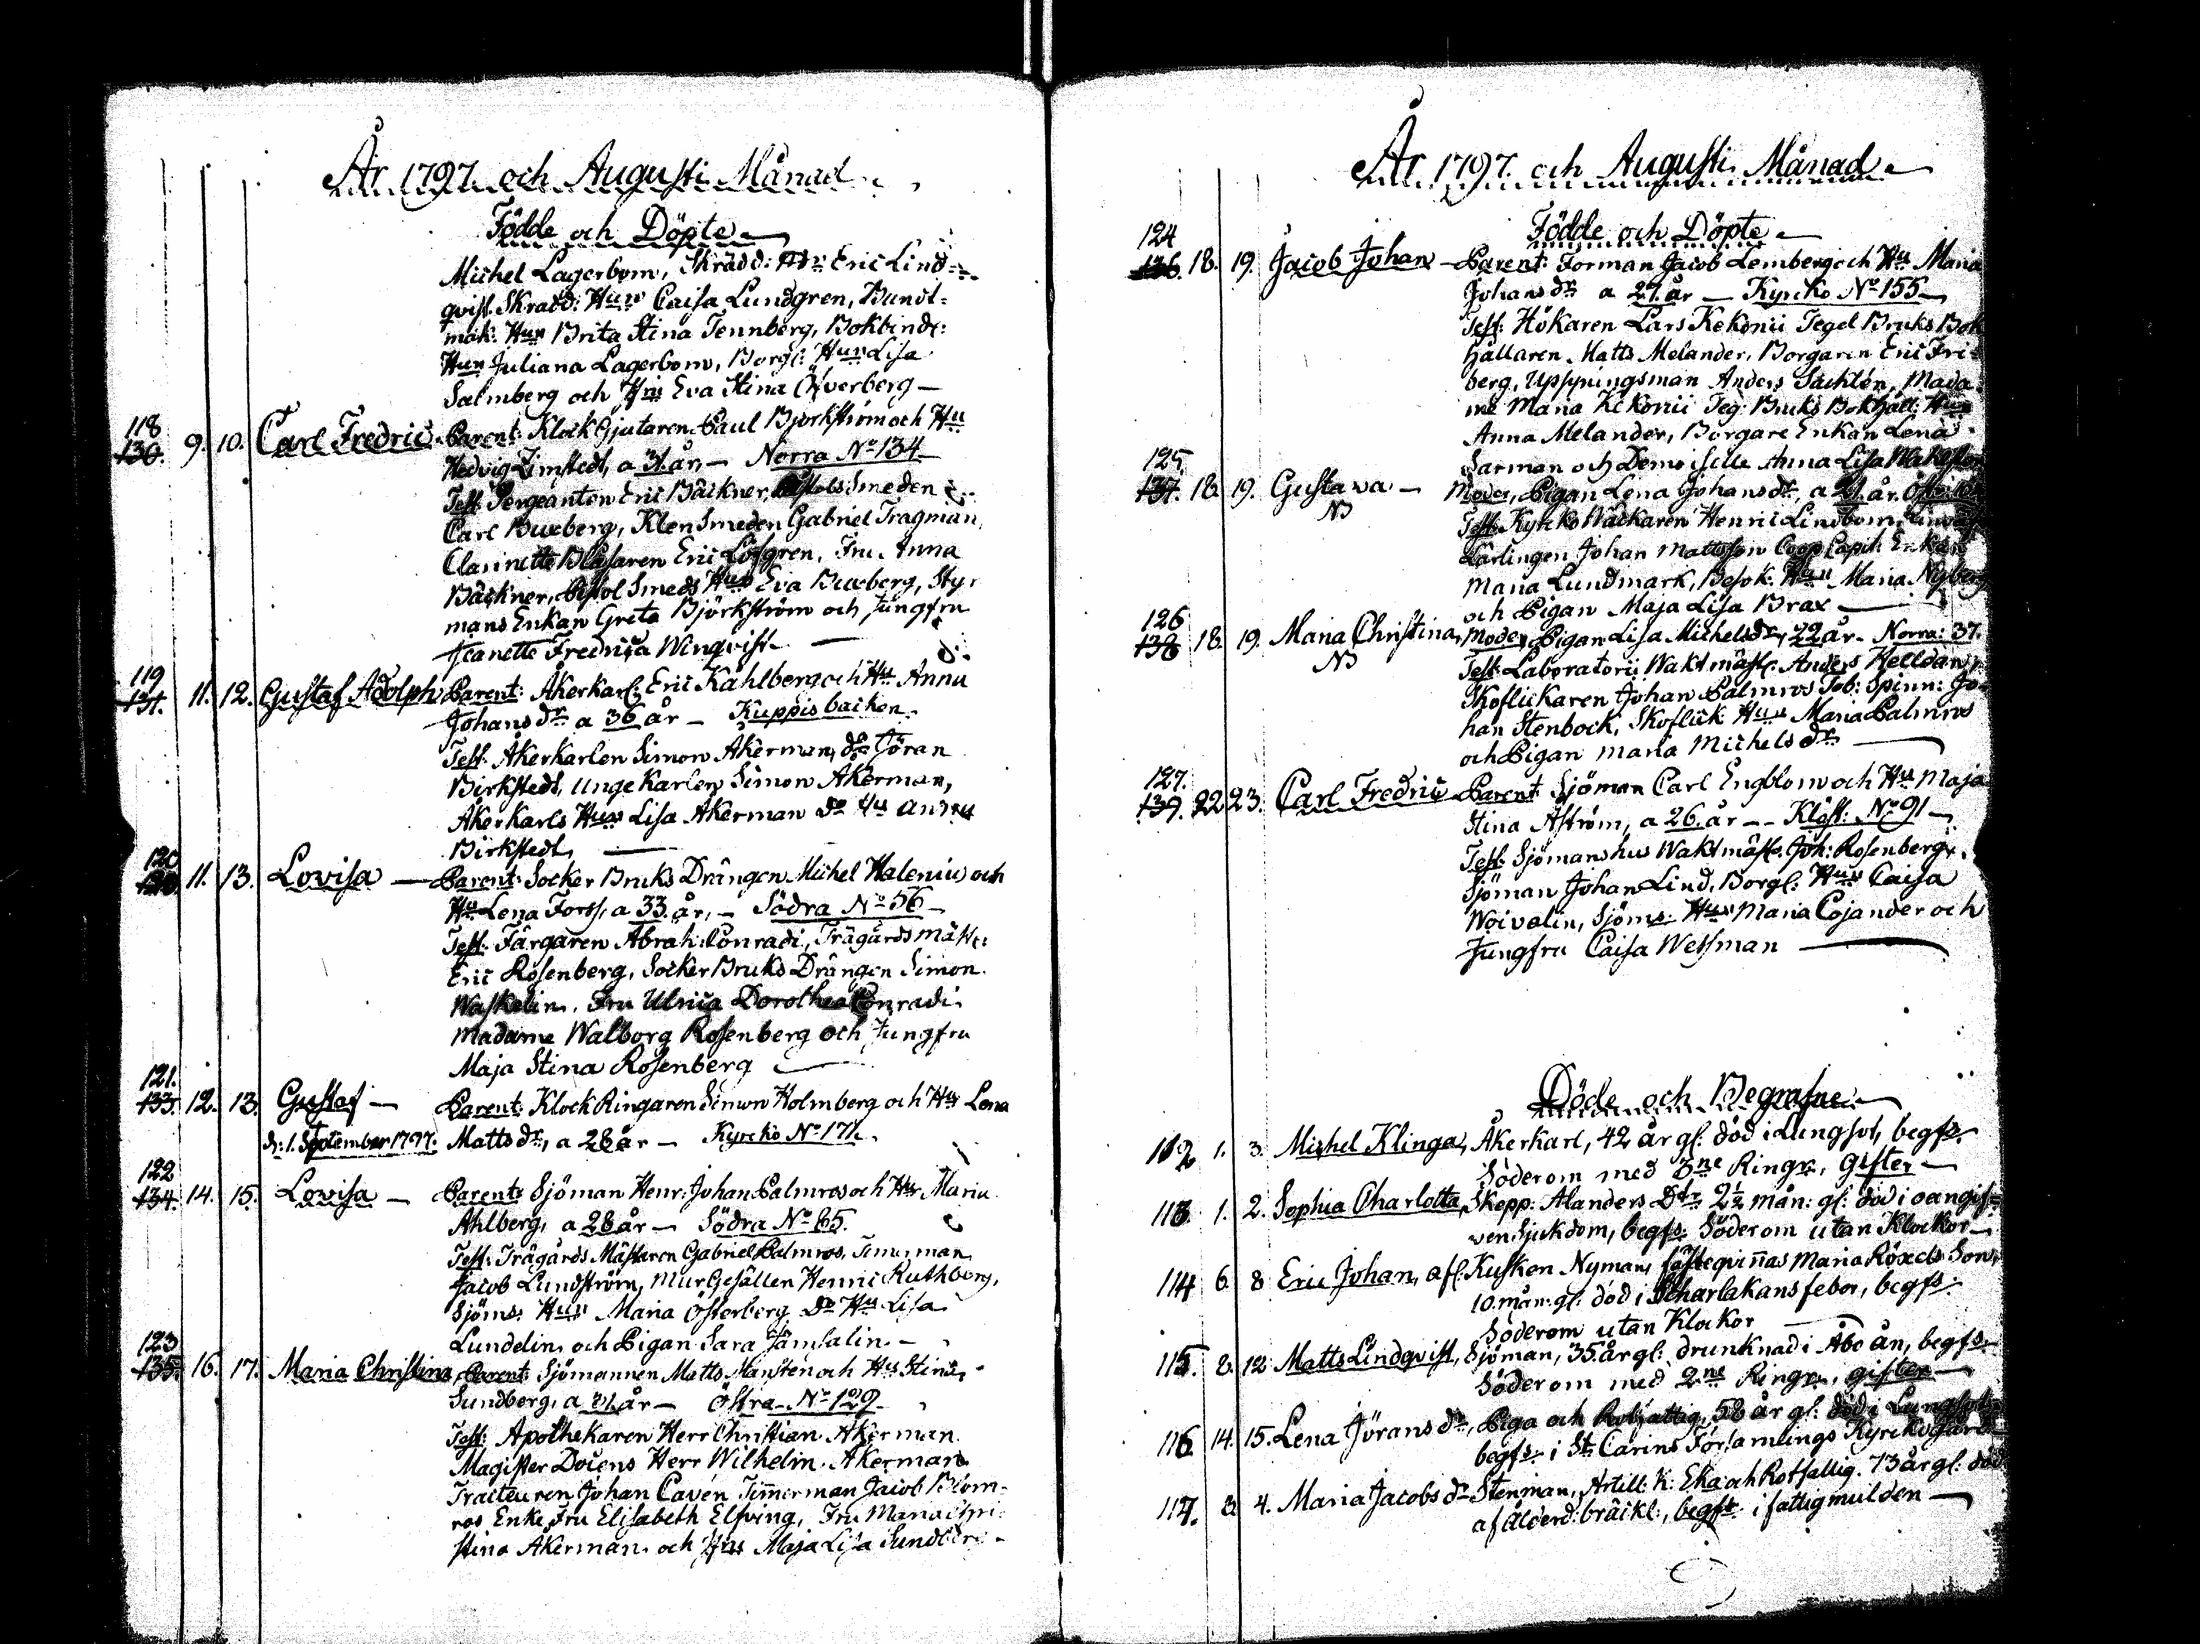 År 1797. och Augusti Månad
Födde och Döpte
Michel Lagerbom, Skrädd: Eric Lind=
qvist. Skrädd: Hun Caisa Lundgren, Bundt=
mak: Hun Brita Stina Tennberg, Bokbind:
Hun Juliana Lagerbom, Borgl: Hun Lisa
Salmberg och Eva Stina Öfverberg
118
130. 9. 10. Carl Fredric. Parent: Klock Gjutaren Paul Björkström och Hu
Hedvig Zimstedt, a 31. år, Norra No 134
Test: Sergeanten Eric Bäckner, Pistolsmeden
Carl Buxberg, Klensmeden Gabriel Tragman,
Clarinette Blåsaren Eric Löfgren, Fru Anna
Bäckner, Pistol Smeds Hun Eva Buxberg, Styr
mans Enkan Greta Björkström och Jungfru
Jeanette Fredrica Winqvist
119
131. 11. 12. Gustaf Adolph Parent: Åkerkarl: Eric Kahlberg och Hu Anna
Johans dr a 36 år — Kuppis backen.
Test: Åkerkarlen Simon Åkerman, do Jöran
Birkstedt, unge Karlen Simon Åkerman,
Åkerkarls Hun Lisa Åkerman do Hu Anna
Birkstedt,
120
11. 13. Lovisa — Parent: Socker Bruks Drängen Michel Halenius och
Hu Lena Forss, a 33. år, — Södra No 56
Test: Färgaren Abrah: Conradi, Trägårds mäst:
Eric Rosenberg, Socker Bruks Drängen Simon
Waskelin, Fru Ulrica Dorothea Conradi
Madame Walborg Rosenberg och Jungfru
Maja Stina Rosenberg
121.
133. 12. 13. Gustaf — Parent: Klock Ringaren Simon Holmberg och Hu Lena
d: 1. September 1797. Matts dr, a 28 år — Kyrcko No 171.
122
134. 14. 15. Lovisa — Parent: Sjöman Henr: Johan Palmros och Hu Maria
Ahlberg, a 28 år — Södra No 65.
Test: Trägårds Mästaren Gabriel Palmros, Timerman
Jacob Lundström, Mur Gesällen Henric Ruthberg,
Sjöms: Hun Maria Österberg Do Hu Lisa
Lundelin och Pigan Sara Jämsalin
123
135. 16. 17. Maria Christina, Parent: Sjömannen Matts Mansten och Hu Stina
Sundberg, a 31. år — Östra No 129
Test: Apothekaren Herr Christian Åkerman
Magister Docens Herr Wilhelm Åkerman
Tracteuren Johan Cavén Timerman Jacob Blom-
ros Enke Fru Elisabeth Elfving, Fru Maria Chri
stina Åkerman och Maja Lisa Sundberg
År 1797. och Augusti Månad
Födde och Döpte
124
136. 18. 19. Jacob Johan — Parent: Forman Jacob Lemberg och Hu Maria
Johans dr a 27. år — Kyrcko No 155
Test: Hökaren Lars Kekonii Tegel Bruks Bok
hållaren Matts Melander, Borgaren Eric Fri=
berg, Uppyningsman Anders Sachlén, Mada
me Maria Kekonii Teg: Bruks Bokhåll: Hun
Anna Melander, Borgare Enkan Lena
Sarman och Demoiselle Anna Lisa
125
137. 18. 19. Gustava — Moder, Pigan Lena Johans dr, a 21. år.
NB Test: Kyrcko Wäckaren Henric Lindbom,
Lärlingen Johan Mattsson Coop Capit: Enkan
Maria Lundmark, Besök: Hun Maria Nyberg
och Pigan Maja Lisa Brax
126
138 18. 19. Maria Christina, Moder, Pigan Lisa Michels dr, 22 år. Norra: 37.
NB Test: Laboratorii Waktmäst: Anders Helldan,
Skoflickaren Johan Palmros Tob: Spinn: Jo-
han Stenbock, Skoflick: Hun Maria Palmros
och Pigan Maria Michels dr
127.
139. 22 23. Carl Fredric Parent: Sjöman Carl Engblom och Hu Maja
Stina Åström, a 26. år — Klöst: No 91
Test: Sjömanshus Waktmäst: Joh: Rosenberg,
Sjöman Johan Lind, Borgl: Hun Caisa
Woivalin, Sjöms: Hun Maria Cojander och
Jungfru Caisa Wessman
Döde och Begrafne
112 1. 3. Michel Klinga, Åkerkarl, 42 år gl: död i Lungsot, begfs:
Söderom med 3ne Ringr:, gifter
113. 1. 2. Sophia Charlotta, Skepp: Alanders Dtr 2½ mån: gl: död i oangif=
ven Sjukdom, begfs: Söderom utan Klockor
114 6. 8 Eric Johan, afl: Kusken Nymans fästeqvinnas Maria Röxels Son,
10. mån: gl: död i Scharlakansfeber, begfs:
Söderom utan Klockor
115. 8. 12 Matts Lindqvist, Sjöman, 35. år gl: drunknad i Åbo ån, begfs:
Söderom med 2ne Ringr:, gifter
116 14. 15. Lena Jörans dr, Piga och Rotfattig, 58 år gl: död i Lungsot
begfs: i St Carins Församlings Kyrckogård
117. 3. 4. Maria Jacobs dr Stenman, Artill: K: Eka och Rotfattig. 73 år gl: död
af ålderd: bräckl:, begfs: i fattigmulden